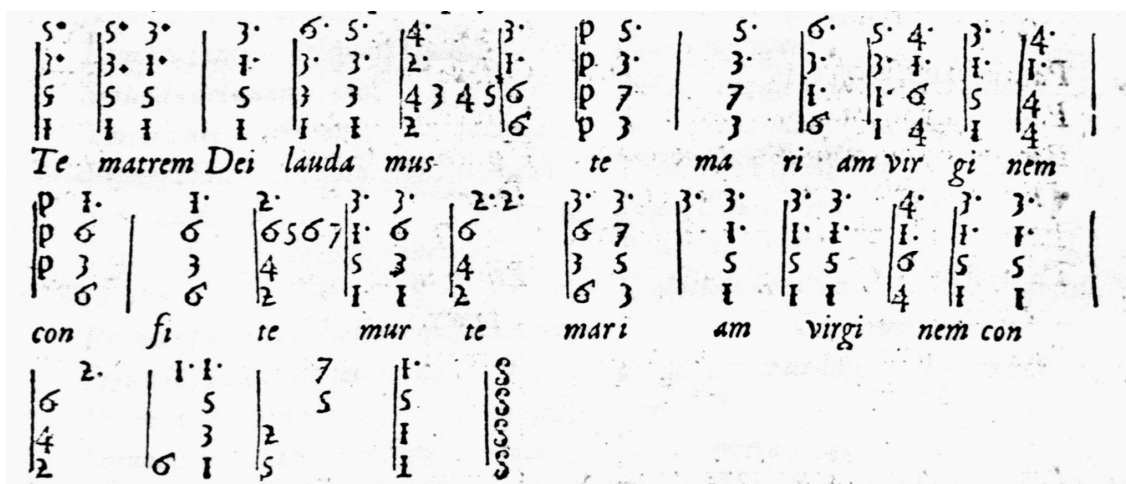 5• 5• 3• 3• 6· 5· 4· 3· p 5· 5· 6· 5· 4· 3· 4·
3• 3• 1• 1• 3· 3 2· 1· p 3· 3· 3· 3· 1· 1· 1·
5 5 5 5 3 3 4 3 4 5 6 p 7 7 1· 1· 6 5 4
1 1 1 1 1 1 2 6 p 3 3 6 1 4 1 4
Te matrem Dei lauda mus te ma ri am vir gi nem
p 1· 1· 2· 3· 3· 2· 2· 3· 3· 3· 3· 3· 3· 4· 3· 3·
p 6 6 6 5 6 7 1· 6 6 6 7 1· 1· 1· 1· 1· 1·
p 3 3 4 5 3 4 3 5 5 5 5 6 5 5
6 6 2 1 1 2 6 3 1 1 1 4 1 1
con fi te mur te mari am virgi nem con
2· 1· 1· 7 1· S
6 5 5 5 S
4 3 2 1 S
2 6 1 5 1 S